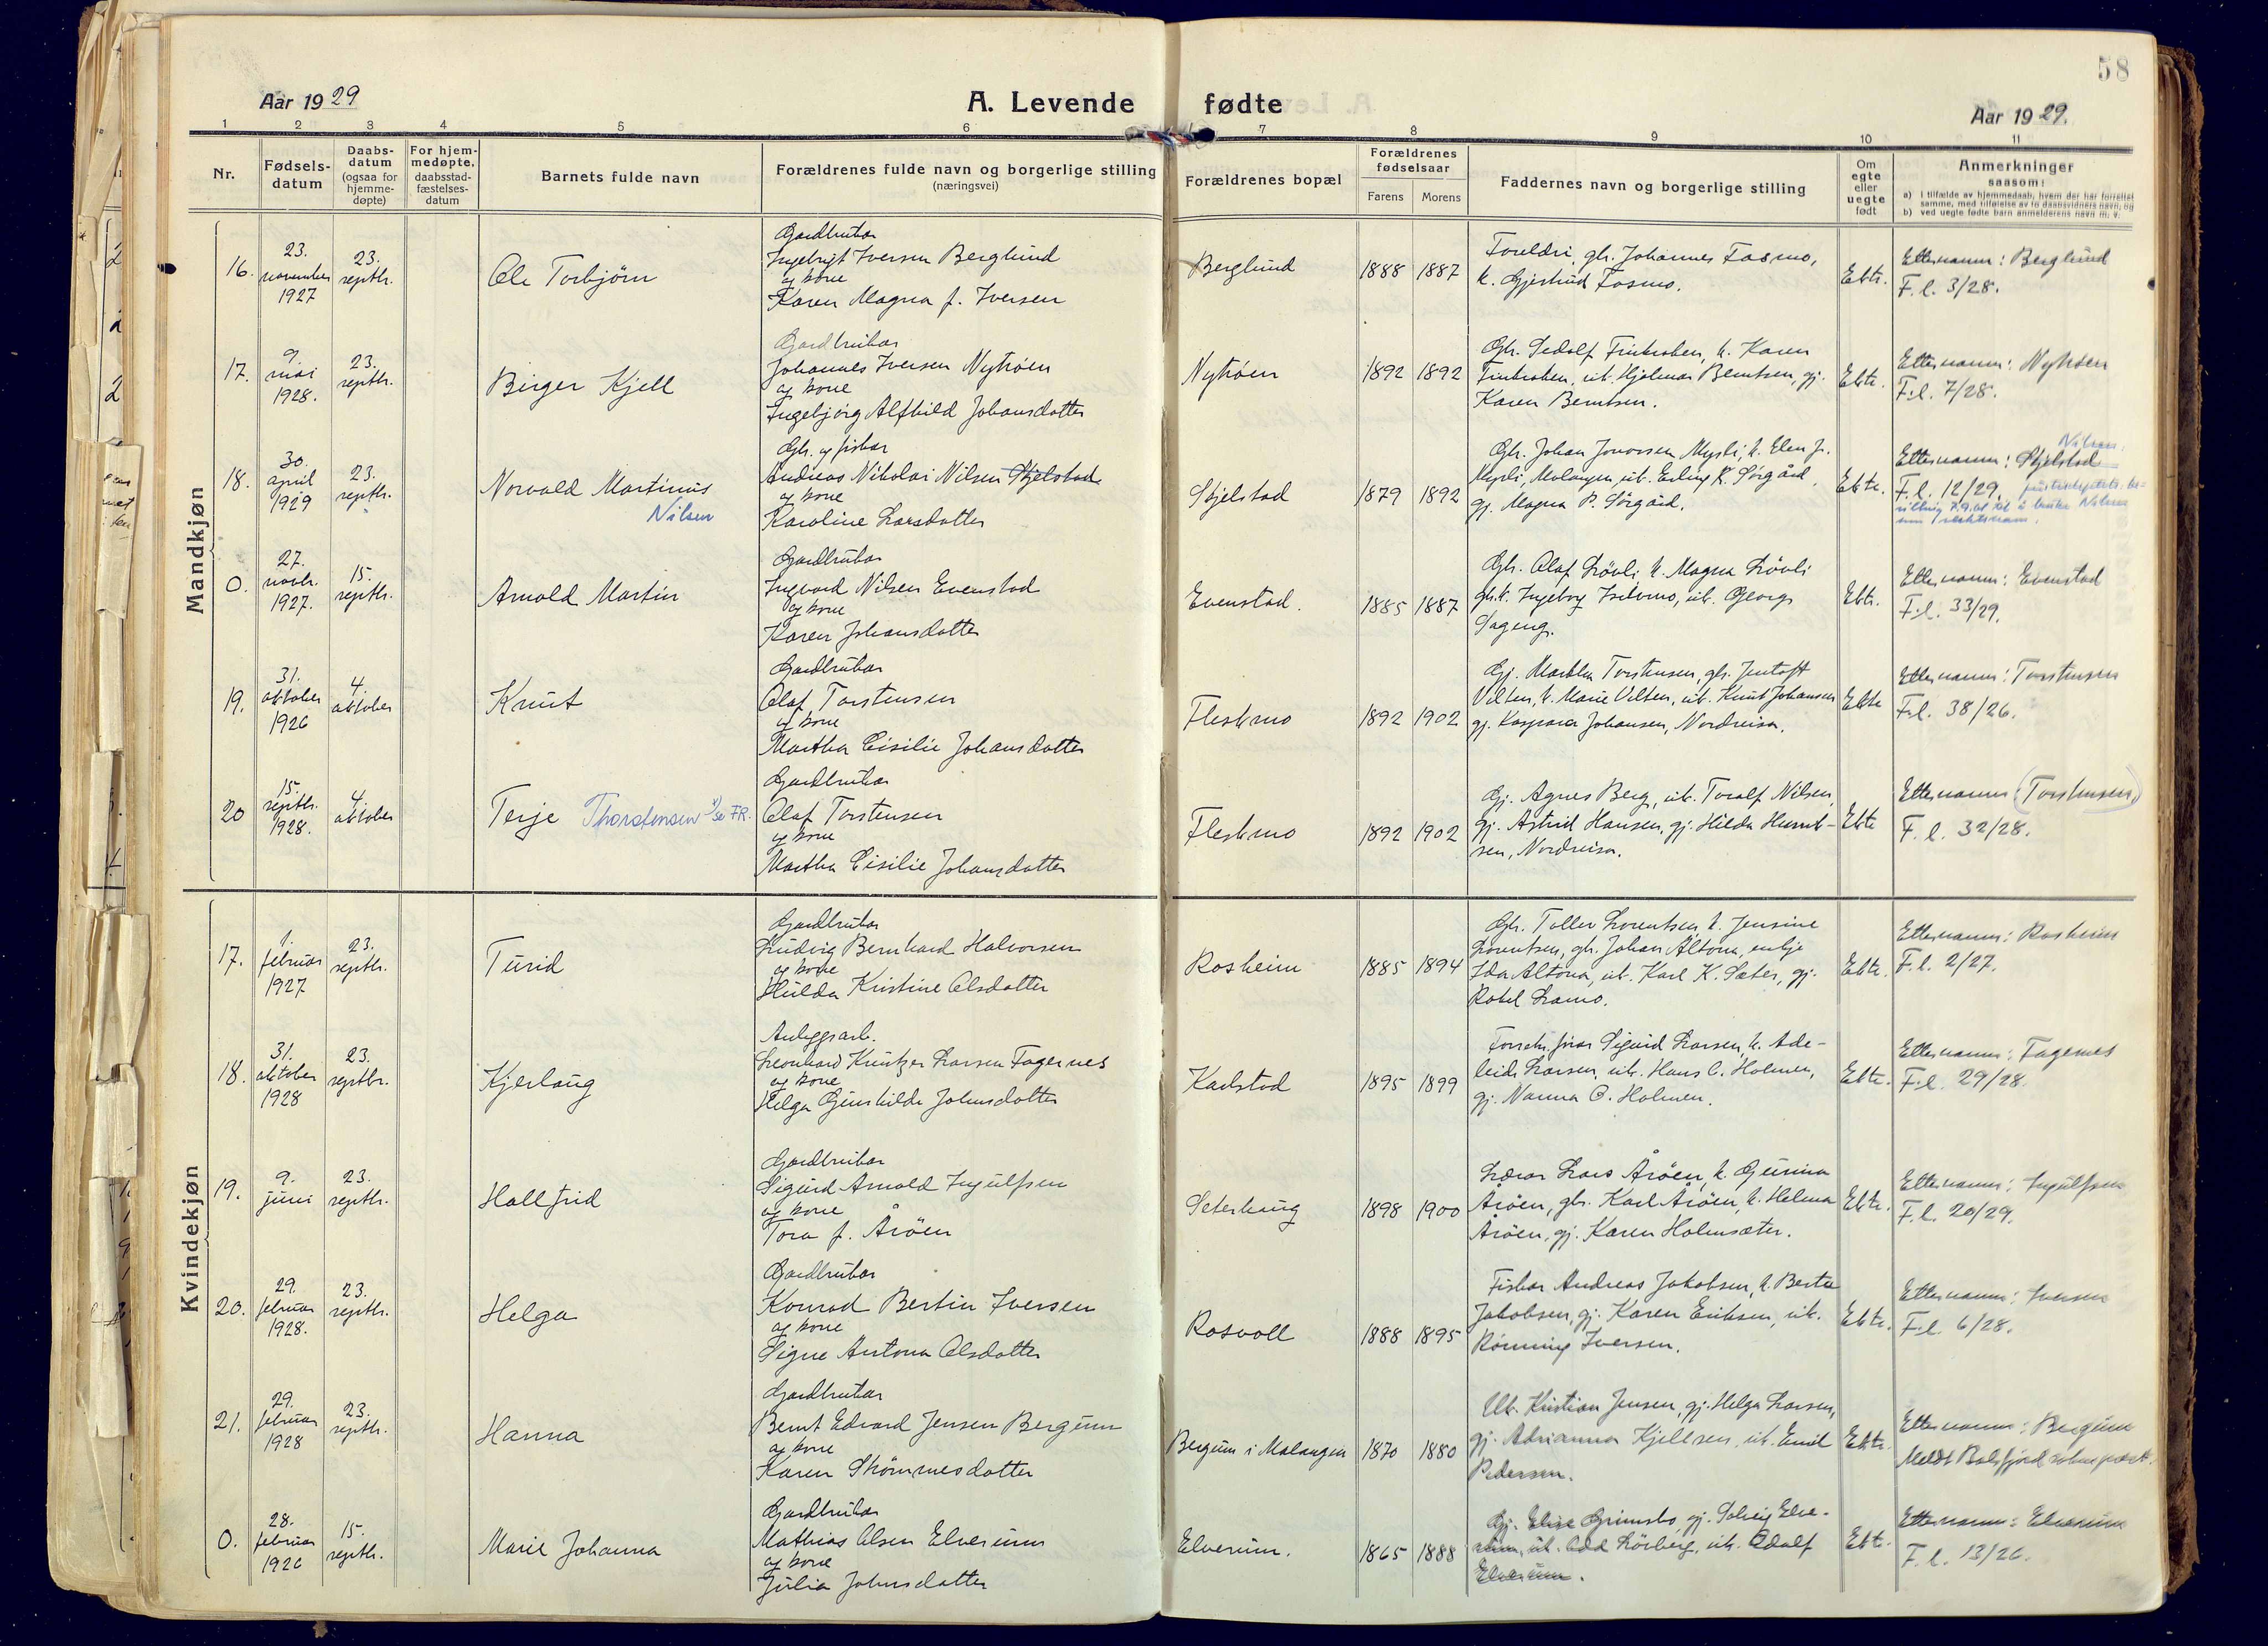 58
Aar 1929
A. Levende fødte
Aar 1929.
1 2 3 4 5 6 7 8 9 10 11
Nr.
Fødsels-
datum
Daabs-
datum
(ogsaa for
hjemme-
døpte)
For hjem-
medøpte,
daabsstad-
fæstelses-
datum
Barnets fulde navn
Forældrenes fulde navn og borgerlige stilling
(næringsvei)
Forældrenes bopæl
Forældrenes
fødselsaar
Farens Morens
Faddernes navn og borgerlige stilling
Om
egte
eller
uegte
født
Anmerkninger
saasom:
a) i tilfælde av hjemmedaab, hvem der har forrettet
samme, med tilføielse av to daabsvidners navn, og
b) ved uegte fødte barn anmelderens navn m. v.
Mandkjøn
16.
23.
november
1927
23.
septbr.
Ole Torbjørn
Gardbrukar
Ingebrigt Iversen Berglund
og kone
Karen Magna f. Iversen
Berglund
1888 1887
Foreldri, gbr. Johannes Fosmo,
k. Gjertrud Fosmo.
Ekte.
Etternamn: Berglund
F.l. 3/28.
17.
9.
mai
1928.
23.
septbr.
Birger Kjell
Gardbrukar
Johannes Iversen Nytrøen
og kone
Ingebjørg Alfhild Johansdotter
Nytrøen
1892 1892
Gbr. Sedolf Finkroken, k. Karen
Finkroken, uk. Hjalmar Berntsen, gj.
Karen Berntsen.
Ekte.
Etternamn: Nytrøen
F.l. 7/28.
18.
30.
april
1929
23.
septbr.
Norvald Martinus
Nilsen
Gbr. og fiskar
Andreas Nikolai Nilsen Skjelstad
og kone
Karoline Larsdotter
Skjelstad
1879 1892
Gbr. Johan Jonassen Mysli, k. Elen Jr.
Mysli, Malangen, uk. Erling K. Sørgård,
gj. Magna P. Sørgård.
Ekte.
Nilsen.
Etternamn: Skjelstad
F.l. 12/29.
0.
27.
novbr.
1927.
15.
septbr.
Arnold Martin
Gardbrukar
Ingvard Nilsen Evenstad
og kone
Karen Johansdotter
Evenstad.
1885 1887
Gbr. Olaf Løvli k. Magna Løvli
gbr.k. Ingeborg Iselvmo, uk. Georg
Sageng.
Ekte.
Etternamn: Evenstad
F.l. 33/29.
19.
31.
oktober
1926
4.
oktober
Knut
Gardbrukar
Olaf Torstensen
og kone
Martha Cisilie Johansdotter
Fleskmo
1892 1902
Gj. Martha Torstensen, gbr. Jentoft
Velten, k. Marie Velten, uk. Knut Johansen
gj. Kaspara Johansen, Nordreisa.
Ekte
Etternamn: Torstensen
F.l. 38/26.
20
15.
septbr.
1928.
4.
oktober
Terje Thorstensen 1/se FR.
Gardbrukar
Olaf Torstensen
og kone
Martha Cisilie Johansdotter
Fleskmo
1892 1902
Gj. Agnes Berg, uk. Toralf Nilsen,
gj. Astrid Hansen, gj. Hilda
sen, Nordreisa.
Ekte
Etternamn (Torstensen)
F.l. 32/28.
Kvindekjøn
17.
1.
februar
1927
23.
septbr.
Turid
Gardbrukar
Ludvig Bernhard Halvorsen
og kone
Hulda Kristine Olsdotter
Rosheim
1885 1894
Gbr. Toller Lorentsen, k. Jensine
Lorentsen, gbr. Johan Altona, enkje
Ida Altona, uk. Karl K. Sæter, gj.
Rakel Lamo.
Ekte.
Etternamn: Rosheim
F.l. 2/27.
18.
31.
oktober
1928
23.
septbr.
Kjerlaug
Anleggsarb.
Leonhard Kreutzer Larsen Fagernes
og kone
Helga Gunhilde Johnsdotter
Karlstad
1895 1899
Sigurd Larsen, k. Ade-
leide Larsen, uk. Hans C. Holmen,
gj. Nanna C. Holmen.
Ekte.
Etternamn: Fagernes
F.l. 29/28.
19.
9.
juni
23.
septbr.
Hallfrid
Gardbrukar
Sigurd Arnold Ingulfsen
og kone
Tora f. Årøen
Seterhaug
1898 1900
Lærar Lars Årøen, k. Gunina
Årøen, gbr. Karl Årøen, k. Helma
Årøen, gj. Karen Holmsæter.
Ekte.
Etternamn: Ingulfsen
F.l. 20/29.
20.
29.
februar
1928.
23.
septbr.
Helga
Gardbrukar
Konrad Bertin Iversen
og kone
Signe Antona Olsdotter
Rosvoll
1888 1895
Fiskar Andreas Jakobsen, k. Berta
Jakobsen, gj. Karen Eriksen, uk.
Rønning Iversen.
Ekte.
Etternamn: Iversen
F.l. 6/28.
21.
29.
februar
1928
23.
septbr.
Hanna
Gardbrukar
Bernt Edvard Jensen Bergum
og kone
Karen Strømmesdotter
Bergum i Malangen
1870 1880
Uk. Kristian Jensen, gj. Helga Larsen,
gj. Adrianna Kjellsen, uk. Emil
Pedersen.
Ekte.
Etternamn: Bergum
Meldt Balsfjord sokneprest.
0.
28.
februar
1926
15.
septbr.
Marie Johanna
Gardbrukar
Mathias Olsen Elverum
og kone
Julia Johnsdotter
Elverum.
1865 1888
Gj. Elise Grimsbo, gj. Solveig Elve-
rum, uk. Odd Lörberg, uk. Adolf
Elverum.
Ekte.
Etternamn: Elverum
F.l. 13/26.